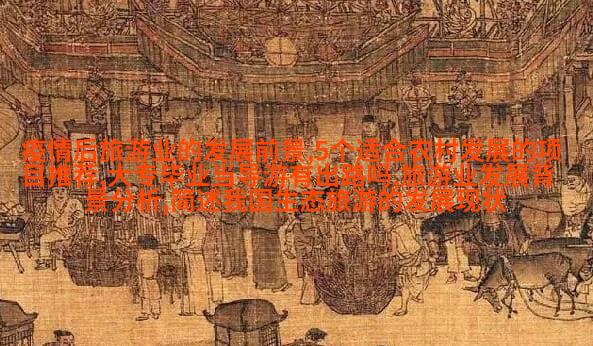 疫情后旅游业的发展前景,5个适合农村发展的项
目推荐,大专毕业当导游有出路吗,旅游业发展背
景分析,简述我国生态旅游的发展现状